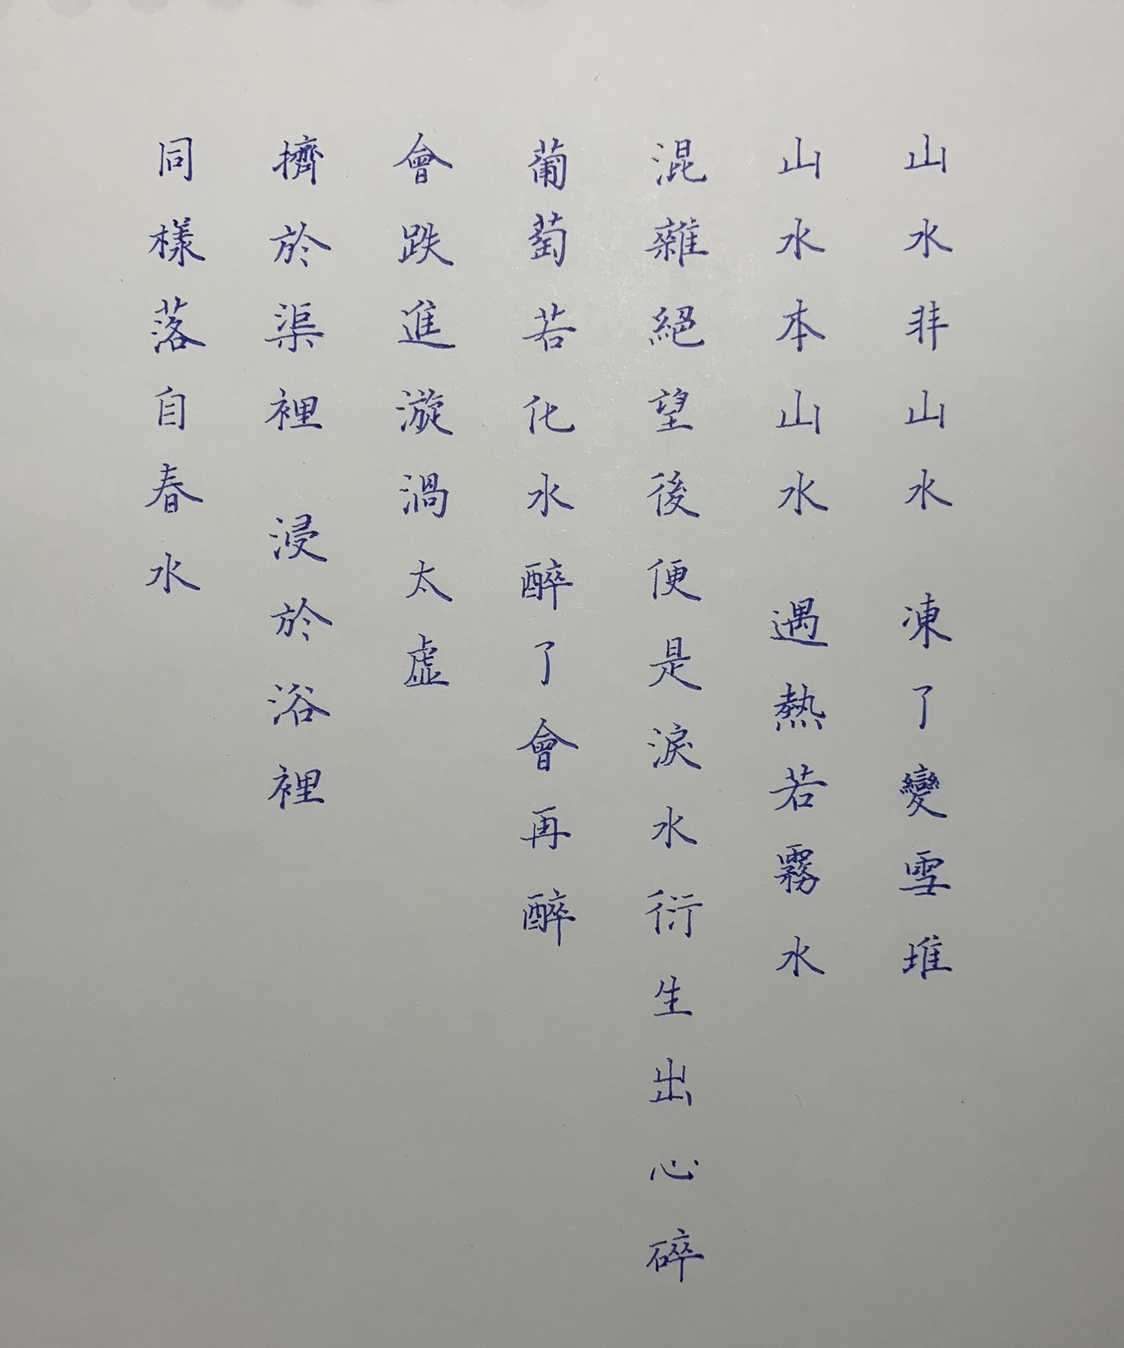 山水非山水 凍了變雪堆
山水本山水 遇熱若霧水
混雜絕望後便是淚水衍生出心碎
葡萄若化水醉了會再醉
會跌進漩渦太虛
擠於渠裡 浸於浴裡
同樣落自春水